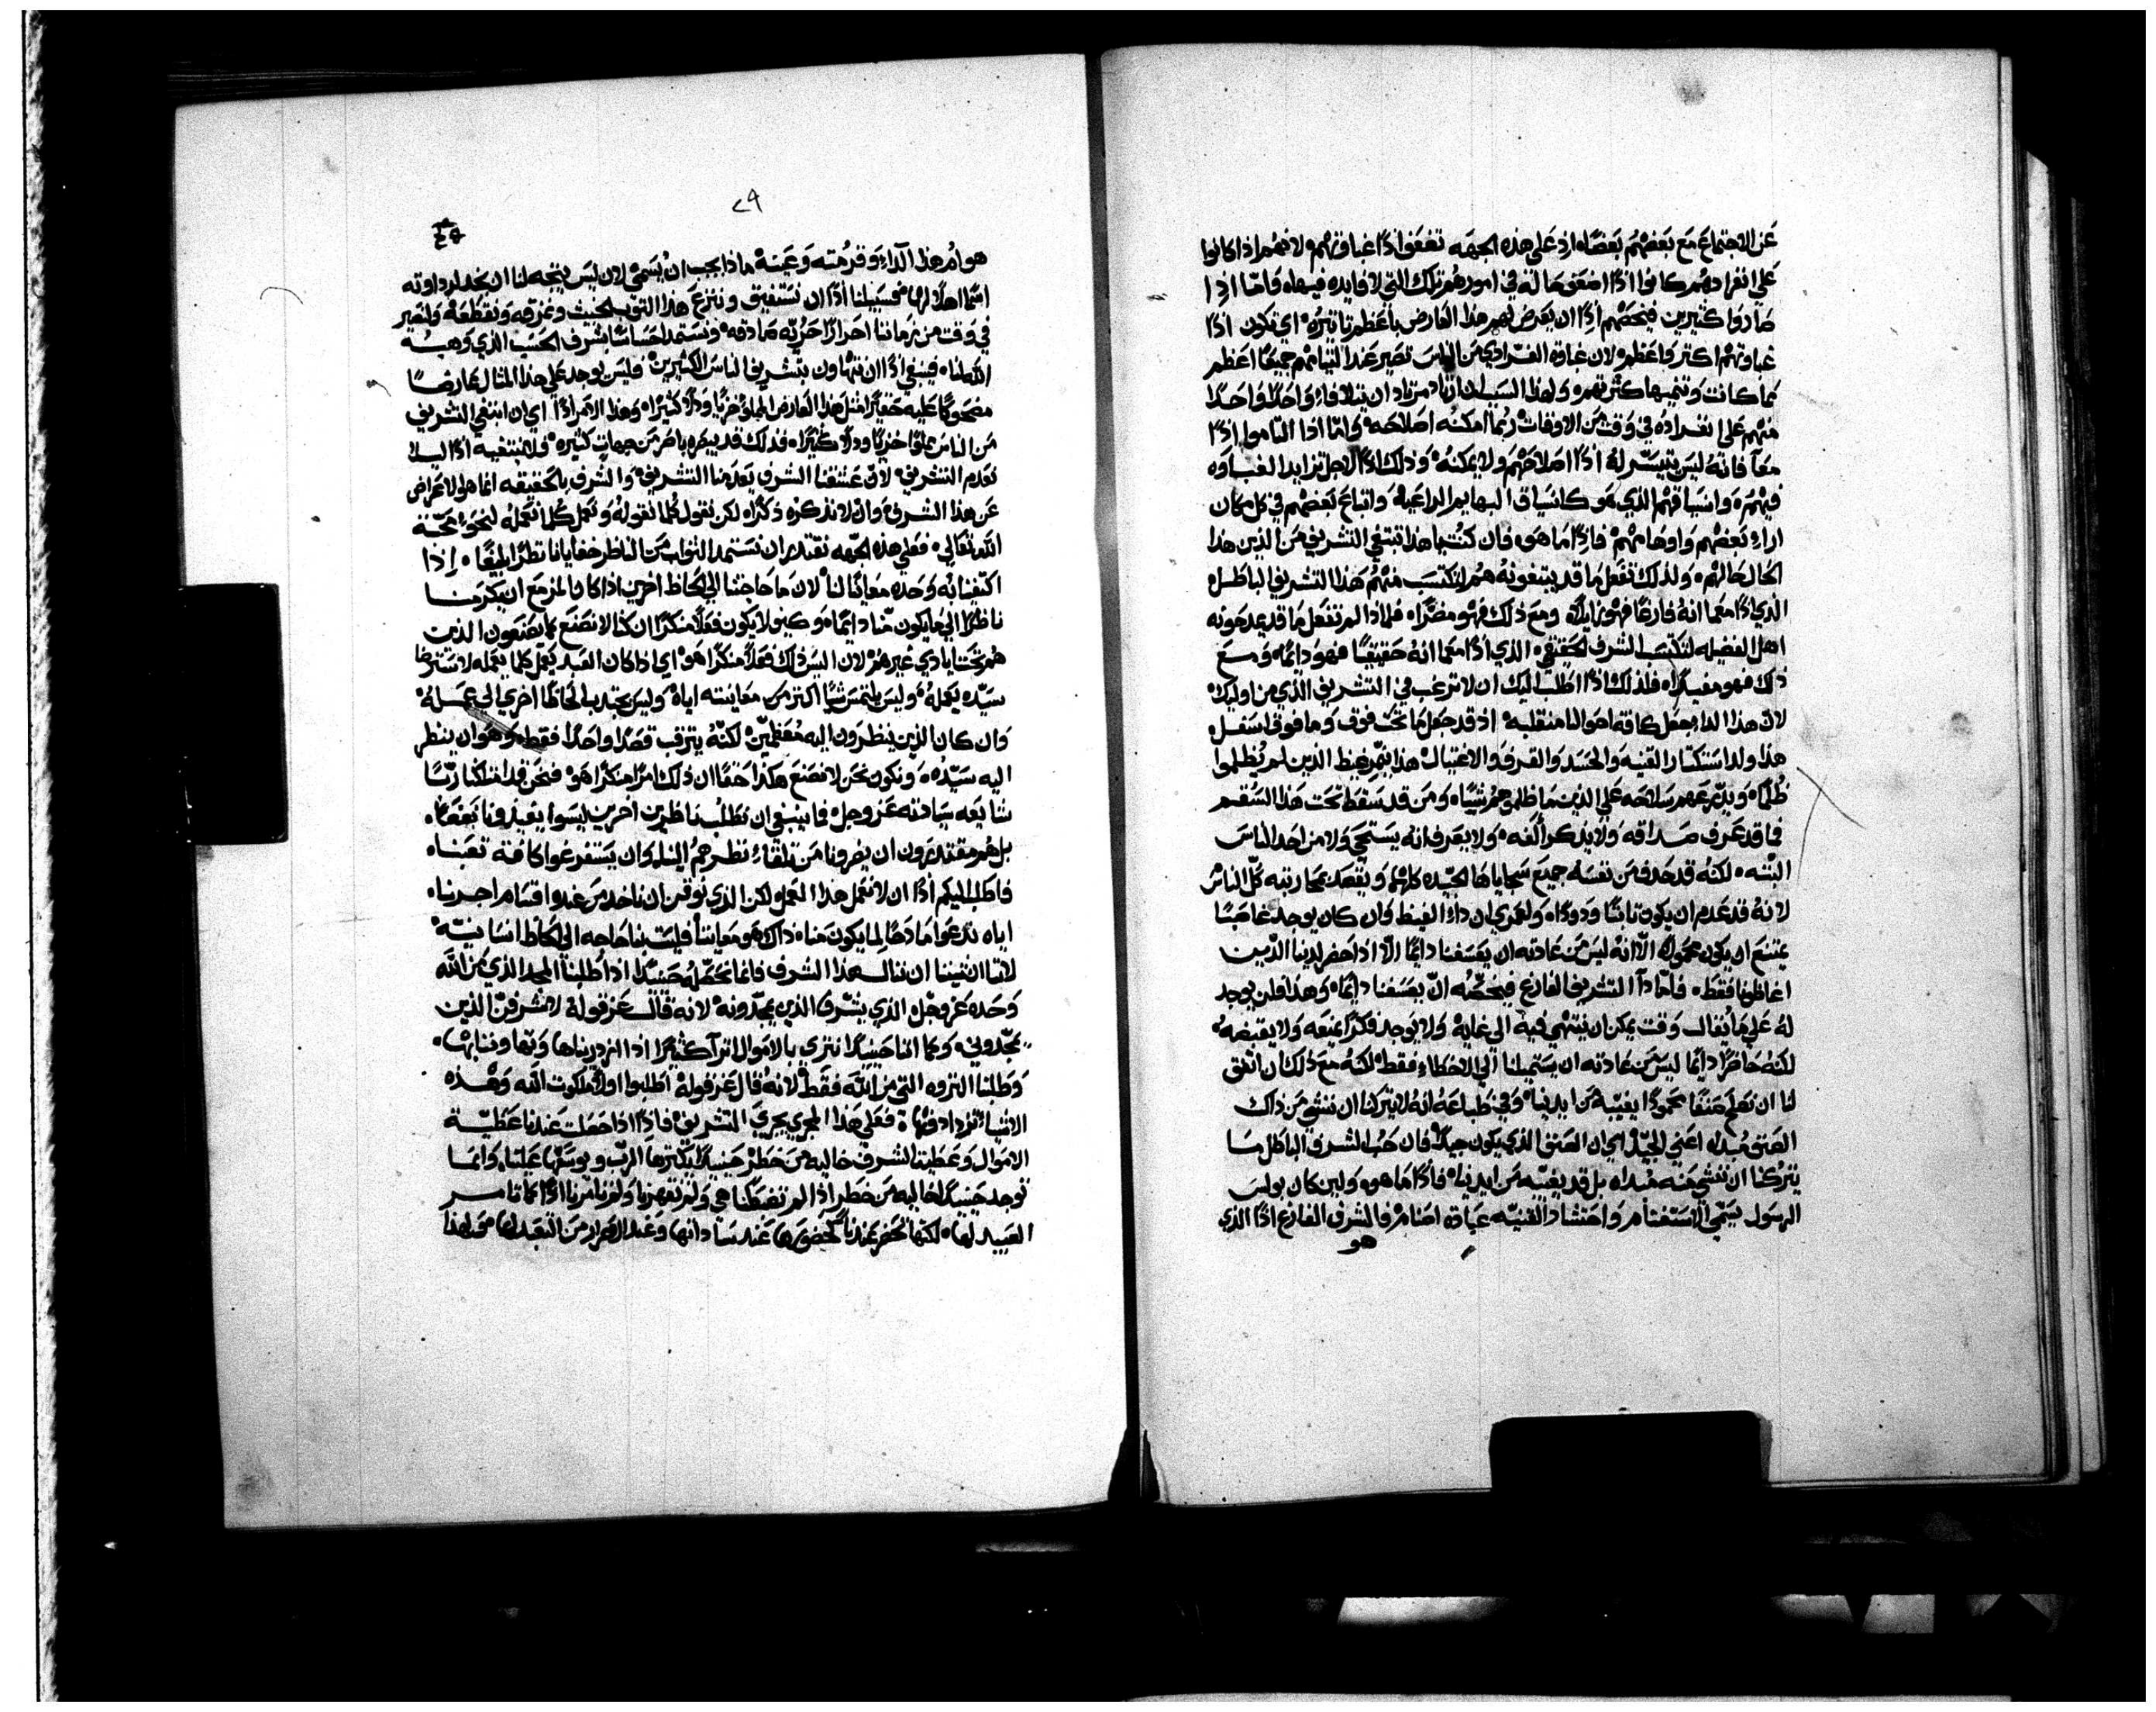 عن الاجتماع مع بعضهم بعضًا، اذ على هذه الجهه تضعف اذًا غباوتهم، لانهم اذا كانوا
على انفرادهم كانوا اذًا اضعف حاله في امورهم تلك التي لا فايده فيها، فامّا اذا
صاروا كثيرين فيخصهم اذًا ان يعرض لهم هذا العارض باعظم تاثيره، اي تكون اذًا
غباوتهم اكثر واعظم، لان غباوة الفرادي من الناس تصير عند التيامهم جميعًا اعظم
مما كانت وتنميها كثرتهم، ولهذا السبب ان اراد مريد ان يتلافاء واحدًا واحدًا
منهم على انفراده في وقت من الاوقات ربما امكنه اصلاحه، وامّا اذا التاموا اذًا
معًا فانه ليس يتيسّر له اذًا اصلاحهم ولا يمكنه، وذلك اذًا لاجل تزايد الغباوه
فيهم، وانسياقهم الذي هو كانسياق البهايم الراعيه، واتباع بعضهم في كل مكان
اراء بعضهم واوهامهم، فاذًا ما هو، فان كنت يا هذا تبتغي التشريف من الذين هذا
الحال حالهم، ولذلك تفعل ما قد يبتغونه هم لتكتسب منهم هذا التشريف الباطل
الذي اذًا معما انه فارغًا فهو زايلًا، ومع ذلك فهو مضرًا، فلماذا لم تفعل ما قد يمدحونه
اهل الفضيله لتكتسب الشرف الحقيقي، الذي اذًا معما انه حقيقيًا فهو دايمًا، ومع
ذلك فهو مفيدًا، فلذلك اذًا اطلب اليك ان لا ترغب في التشريف الذي من اوليك،
لان هذا الداء يجعل كافة احوالنا منقلبه، اذ قد جعل ما تحت فوق وما فوق اسفل
هذا ولد استكثار القنيه والحسد والقرف والاغتيال، هذا ينمّر غيظ الذين لم يُظلموا
ظُلمًا، ويدبّر عمهم سلاحه على الذين ما ظلموهم شيًا، ومن قد سقط تحت هذا السُقم
فما قد عرف صداقه، ولا يذكر الفه، ولا يعرف انه يستحي ولا من احد الناس
البتّه، لكنه قد حذف من نفسه جميع سجاياها الجيّده كلها، ويقصد محاربته كلّ الناس
لانه قد عدم ان يكون ثابتًا ودودًا، ولعمري ان داء الغيظ وان كان يوجد غاصبًا
يمتنع ان يكون محمولًا، الّا انه ليس من عادته ان يعسفنا دايمًا الّا اذا حضر لدينا الذين
اغاظونا فقط، فامّا داآ التشريف الفارغ فيخصّه ان يعسفنا دايمًا، وهذا فلن يوجد
له على ما يُقال وقت يمكن ان ينتهي فيه الى غاية، ولا يوجد فكرًا يمنعه ولا يقبضه،
لكنه حاضرًا دايمًا ليس من عادته ان يستميلنا الى الاخطاء فقط، لكنه مع ذلك ان اتفق
لنا ان نعمل صنفًا محمودًا يغيّبه من ايدينا، وفي طباعه انه لا يتركنا ان ننشي من ذلك
الصنف مبداه، اعني الجيّد، اي ان الصنف الذي يكون جيدًا، فان حُب الشرف الباطل ما
يتركنا ان ننشي منه مبداه بل قد يغيّبه من ايدينا، فاذًا ما هو، ولين كان بولس
الرسول يسمّي الاستغنام واحتشاد القنيه عبادة اصنام، فالشرف الفارغ اذًا الذي
هو
٢٩
هو امر هذا الداء وقرمته وعينه ماذا يجب ان يسمى، لان ليس يتجه لنا ان نجد لرداوته
اسمًا اهلًا لها، فسبيلنا اذًا ان نستفيق وننزع هذا الثوب الخبيث ونمزقه ونقطعه، ولنصير
في وقت من زماننا احرارًا حرّيّه صادقه، ونستمد احساسًا بشرف الحسب الذي وهبه
الله لنا، فينبغي اذًا ان نتهاون بتشريف الناس الكثيرين، فليس يوجد على هذا المثال عارضًا
مضحوكًا عليه حقيرًا مثل هذا العارض المملوء خزيًا وذلًا كثيرًا، وهذا الامر اذًا اي ان ابتغي التشريف
من الناس مملوًا خزيًا وذلًا كثيرًا، فذلك قد يبصره باصر من جهاتٍ كثيره، فلا نبتغيه اذًا ليلا
نعدم التشريف، لانّ عشقنا الشرف يعدمنا التشريف، والشرف بالحقيقه انما هو الاعراض
عن هذا الشرف، وان لا نذكره ذكرًا، لكن نقول كُلما نقوله ونعمل كُلما نعمله لنحوا محبّة
الله تعالى، فعلى هذه الجهه نقتدر ان نستمد الثواب من الناظر خفايانا نظرًا بليغًا، اذا
اكتفينا به وحده معاينًا لنا، لان ما حاجتنا الى لحاظ اخرين، اذا كان المزمع ان يكرمنا
ناظرًا الى ما يكون منّا دايمًا، وكيف لا يكون فعلًا منكرًا ان كنا لا نصنع كما يصنعون الذين
هم تحت ايادي غيرهم، لان اليس ذلك فعلًا منكرًا هو، اي اذا كان العبد يعمل كلما يعمله لاسترضا
سيّده يعمله، وليس يلتمس شيًا اكثر من معاينته اياه، وليس يجتذب الحاظًا اخرى الى عمله،
وان كان الذين ينظرون اليه مُعظّمين، لكنّه يترقب قصدًا واحدًا فقط وهو ان ينظر
اليه سيّده، ونكون نحن لا نصنع هكذا، حقًا ان ذلك امرًا منكرًا هو، فنحن قد امتلكنا ربًا
شايعه سيادته عز وجل، فما ينبغي ان نطلب ناظرين اخرين ليسوا يفيدونا نفعًا،
بل هم مقتدرون ان يضرونا من تلقاء نظرهم الينا، وان يستفرغوا كافة تعبنا،
فاطلب اليكم اذًا ان لا نعمل هذا العمل، لكن الذي نوقن ان ناخذ من عنده اقسام اجرنا،
اياه ندعوا مادحًا لِما يكون منا، ذاك هو معايننا، فليست بنا حاجه الى الحاظ انسانيّه
لاننا ان شينا ان ننال هذا الشرف، فانما نحصّله حينيذًا اذا طلبنا المجد الذي من الله
وحده عز وجل الذي يشرّف الذين يمجدونه، لانه قال عز قوله لاشرفنّ الذين
يمجدوني، وكما اننا حينيذًا نثري بالاموال اثرآ كثيرًا اذا ازدريناها وتهاونّا بها،
وطلبنا الثروه التي من الله فقط، لانه قال عز قوله اطلبوا اولًا ملكوت الله وهذه
الاشياء تزدادونها، فعلى هذا المجرى يجري التشريف، فاذًا اذا حصلت عندنا عطيّة
الاموال وعطية الشرف خاليه من خطر حينيذًا يكثرها الرب ويوسعها علينا، وانما
توجد حينيذًا خاليه من خطر اذا لم تضبطنا هي ولم تقهرنا ولم تامرنا اذًا كما تامر
العبيد لها، لكنها تحضر عندنا كحضورها عند ساداتها وعند الاحرار من التعبد لها، فلهذا